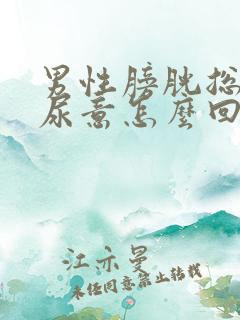 男性膀胱总
尿意怎麼回
江亦曼
未经同意禁止转载